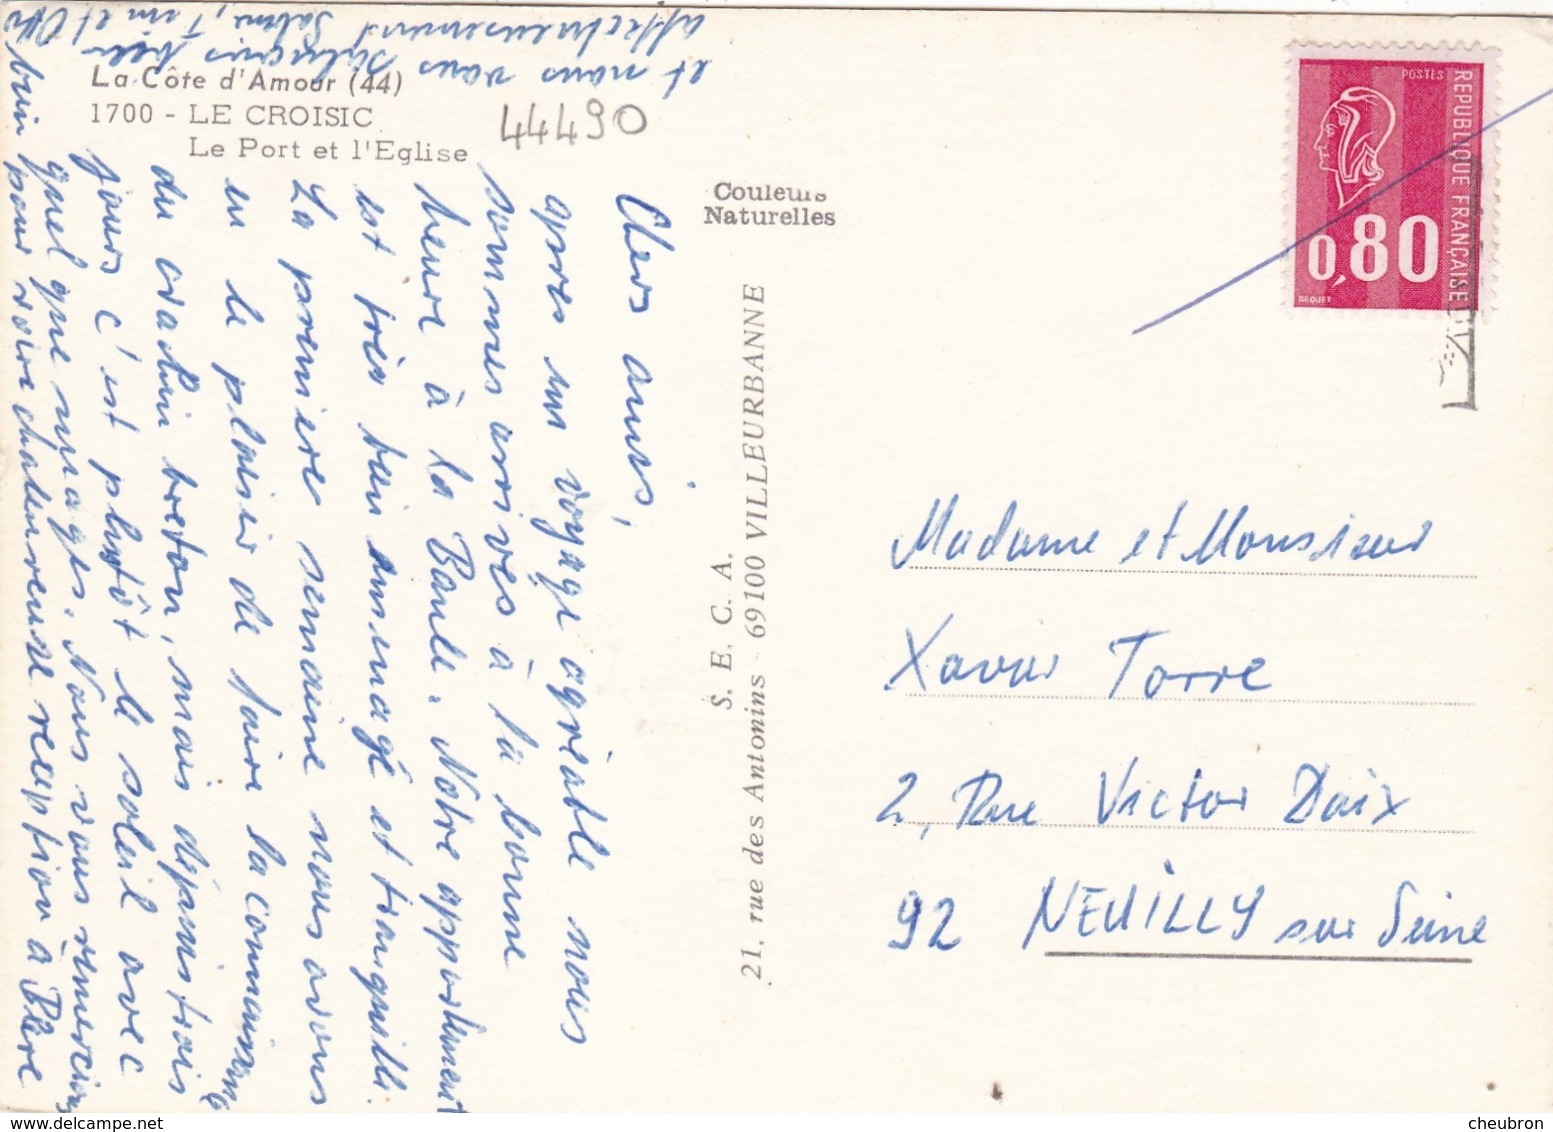 La Côte d'Amour (44)
1700 - LE CROISIC
Le Port et l'Eglise
44490
Couleurs
Naturelles
S. E. C. A.
21, rue des Antonins - 69100 VILLEURBANNE
POSTES
REPUBLIQUE FRANÇAISE
0,80
BEQUET
Chers amis,
apres un voyage agréable nous
sommes arrivés à la bonne
heure à la Baule. Notre appartement
est très bien amenagé et tranquille.
La premiere semaine nous avons
eu le plaisir de faire la connaissance
du crachin breton, mais depuis trois
jours c'est plutôt le soleil avec
quelque nuages. Nous vous remercions
bien pour votre chaleureuse reception à Bléré
et nous vous saluons bien
affectueusement Sabine, Tim et
Madame et Monsieur
Xavier Torre
2, Rue Victor Daix
92 NEUILLY sur Seine
cheubron